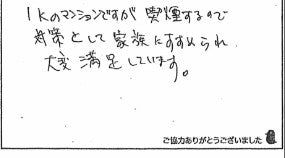 1Kのマンションですが喫煙するので
対策として家族にすすめられ
大変満足しています。
ご協力ありがとうございました